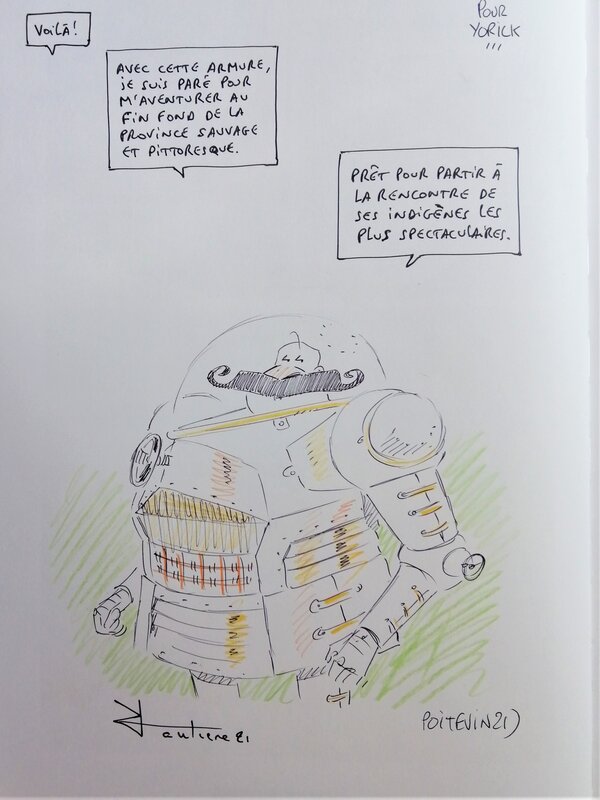 VOILÀ!
POUR
YORICK
AVEC CETTE ARMURE,
JE SUIS PARÉ POUR
M'AVENTURER AU
FIN FOND DE LA
PROVINCE SAUVAGE
ET PITTORESQUE.
PRÊT POUR PARTIR À
LA RENCONTRE DE
SES INDIGÈNES LES
PLUS SPECTACULAIRES.
POITEVIN 21)